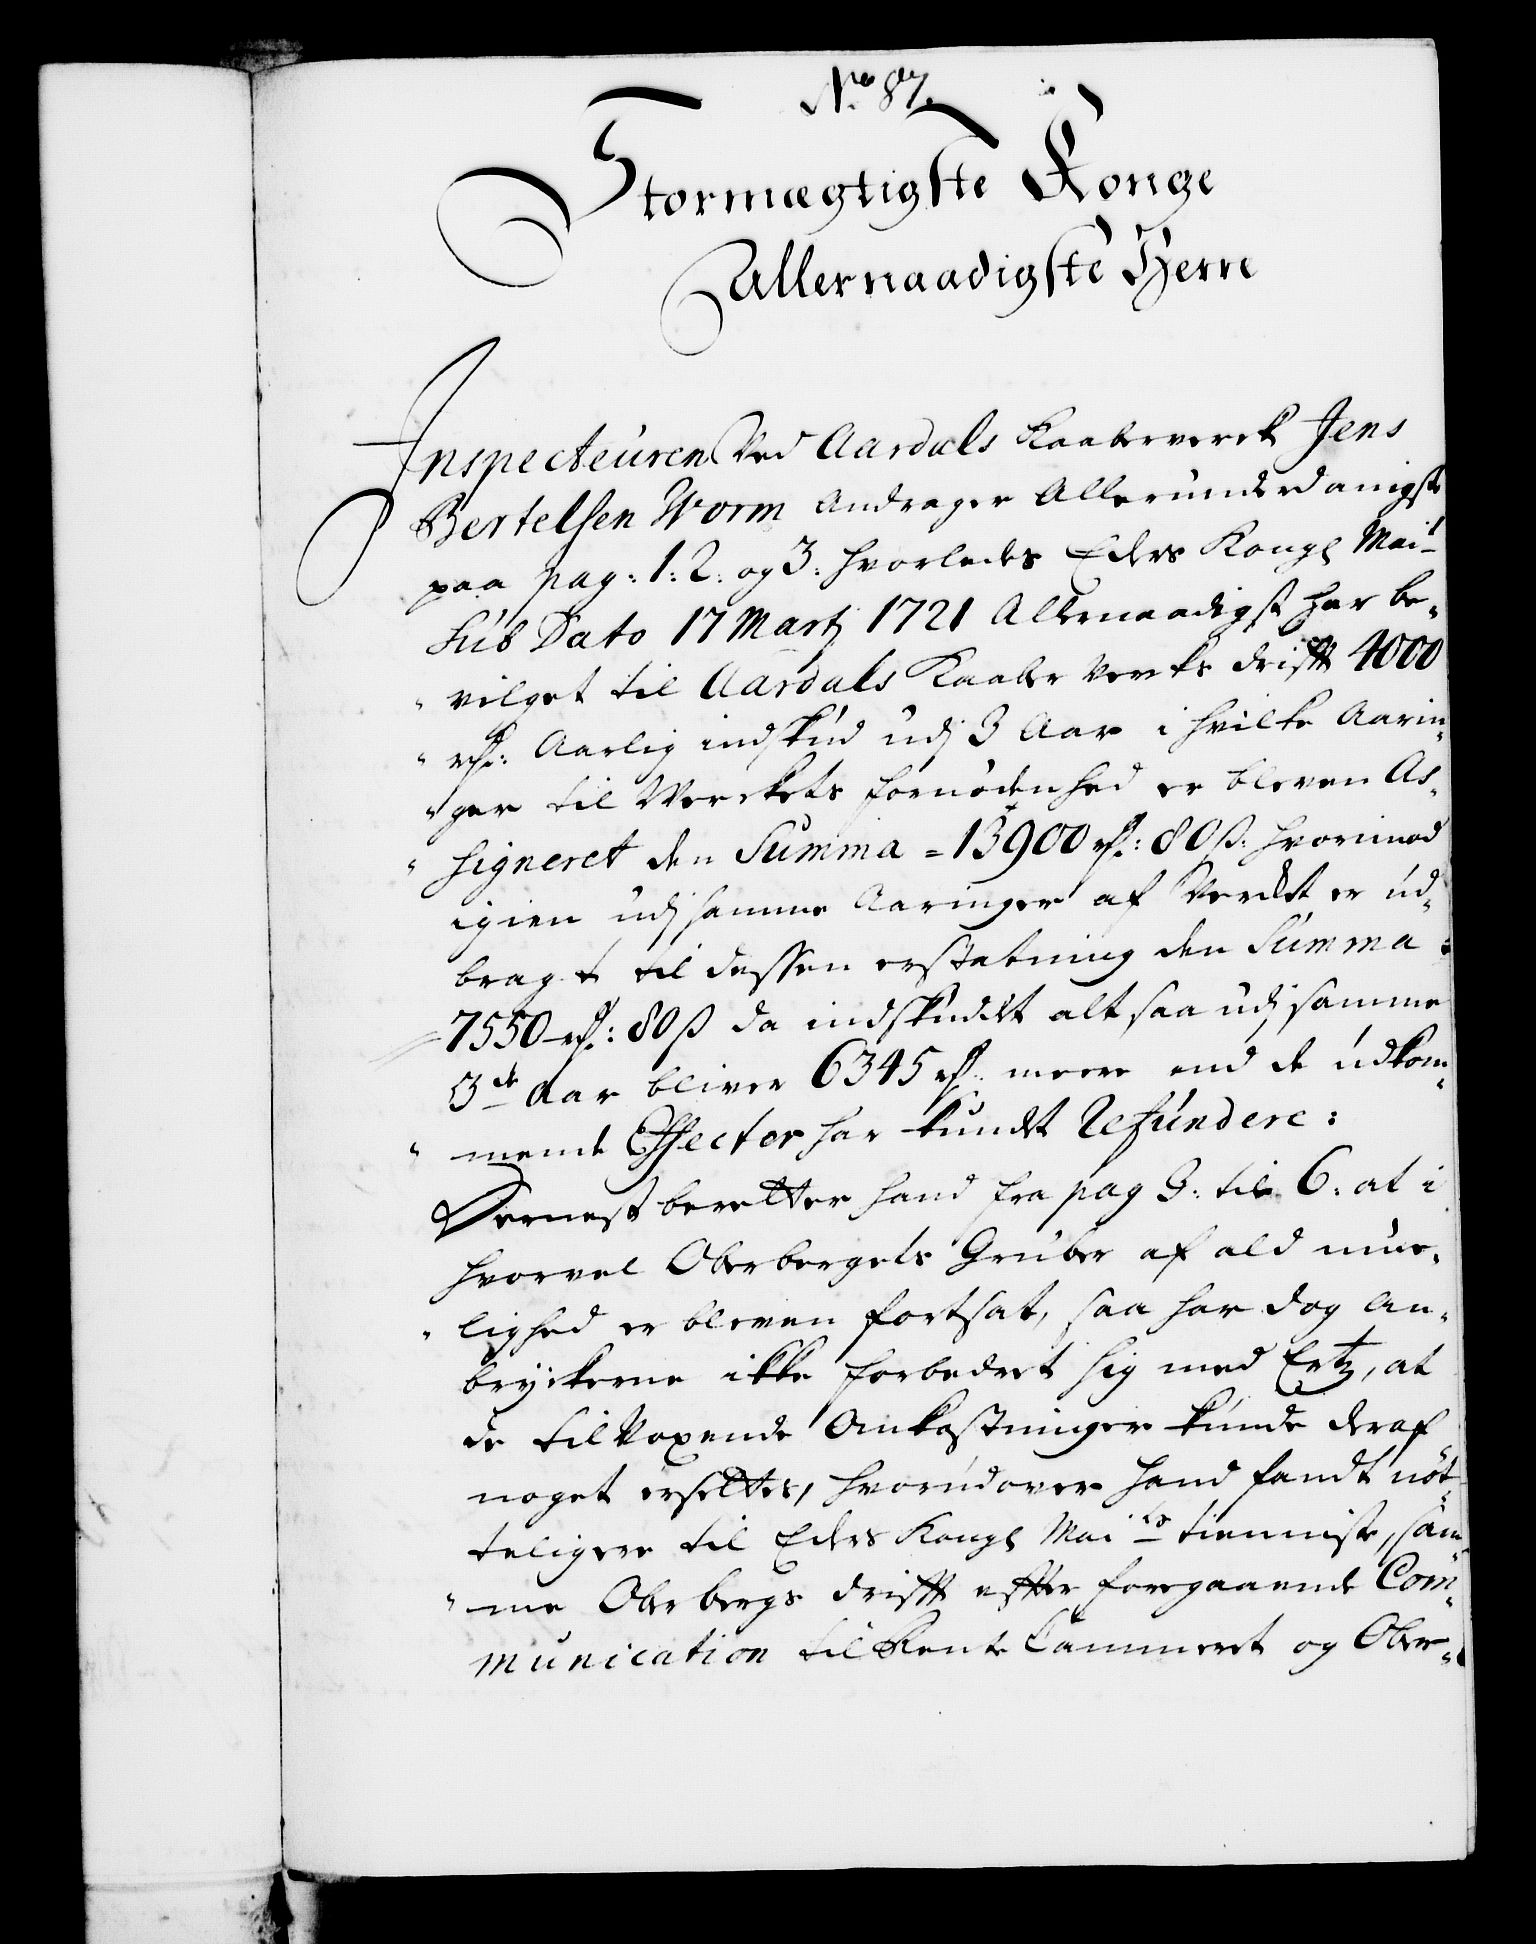 No 87.
Stormægtigste Konge
Allernaadigste Herre
Inspecteuren Ved Aardals Kaaberverck Jens
Bertelsen Worm Andrager Allerunderdanigst
paa pag: 1: 2: og 3: hvorledes Eders Kongl Mai
Sub Dato 17 Martj 1721 Allernaadigst har be„
„ vilget til Aardals Kaaber Verks drifft 4000
„ rd: Aarlig indskud udj 3 Aar i hvilke Aarin„
„ ger til Verckets fornødenhed er bleven As„
„ signeret den Summa = 13900 rd: 80 ß: hvorimod
igien udj samme Aaringer af Verket er ud„
bragt til dessen erstatning den Summa
7550 rd: 80 ß da indskudet alt saa udj samme
3de Aar bliver 6345 rd. meere end de udkom„
„ mende Effecter har kundet Refundere:
Dernest beretter hand fra pag 3: til 6: at i
hvorvel Oberbergets Gruber af ald mue„
„ lighed er bleven fortsat, saa har dog An„
bryckerne ikke forbedret sig med Ertz, at
de tilvoxende Omkostninger kunde deraf
noget ersettes, hvorudover hand fandt nöt„
teligere til Eders Kongl Maits tienniste, sam„
„ me Oberbergs drifft effter foregaaende Com„
munication til Rente Cammeret og Ober„